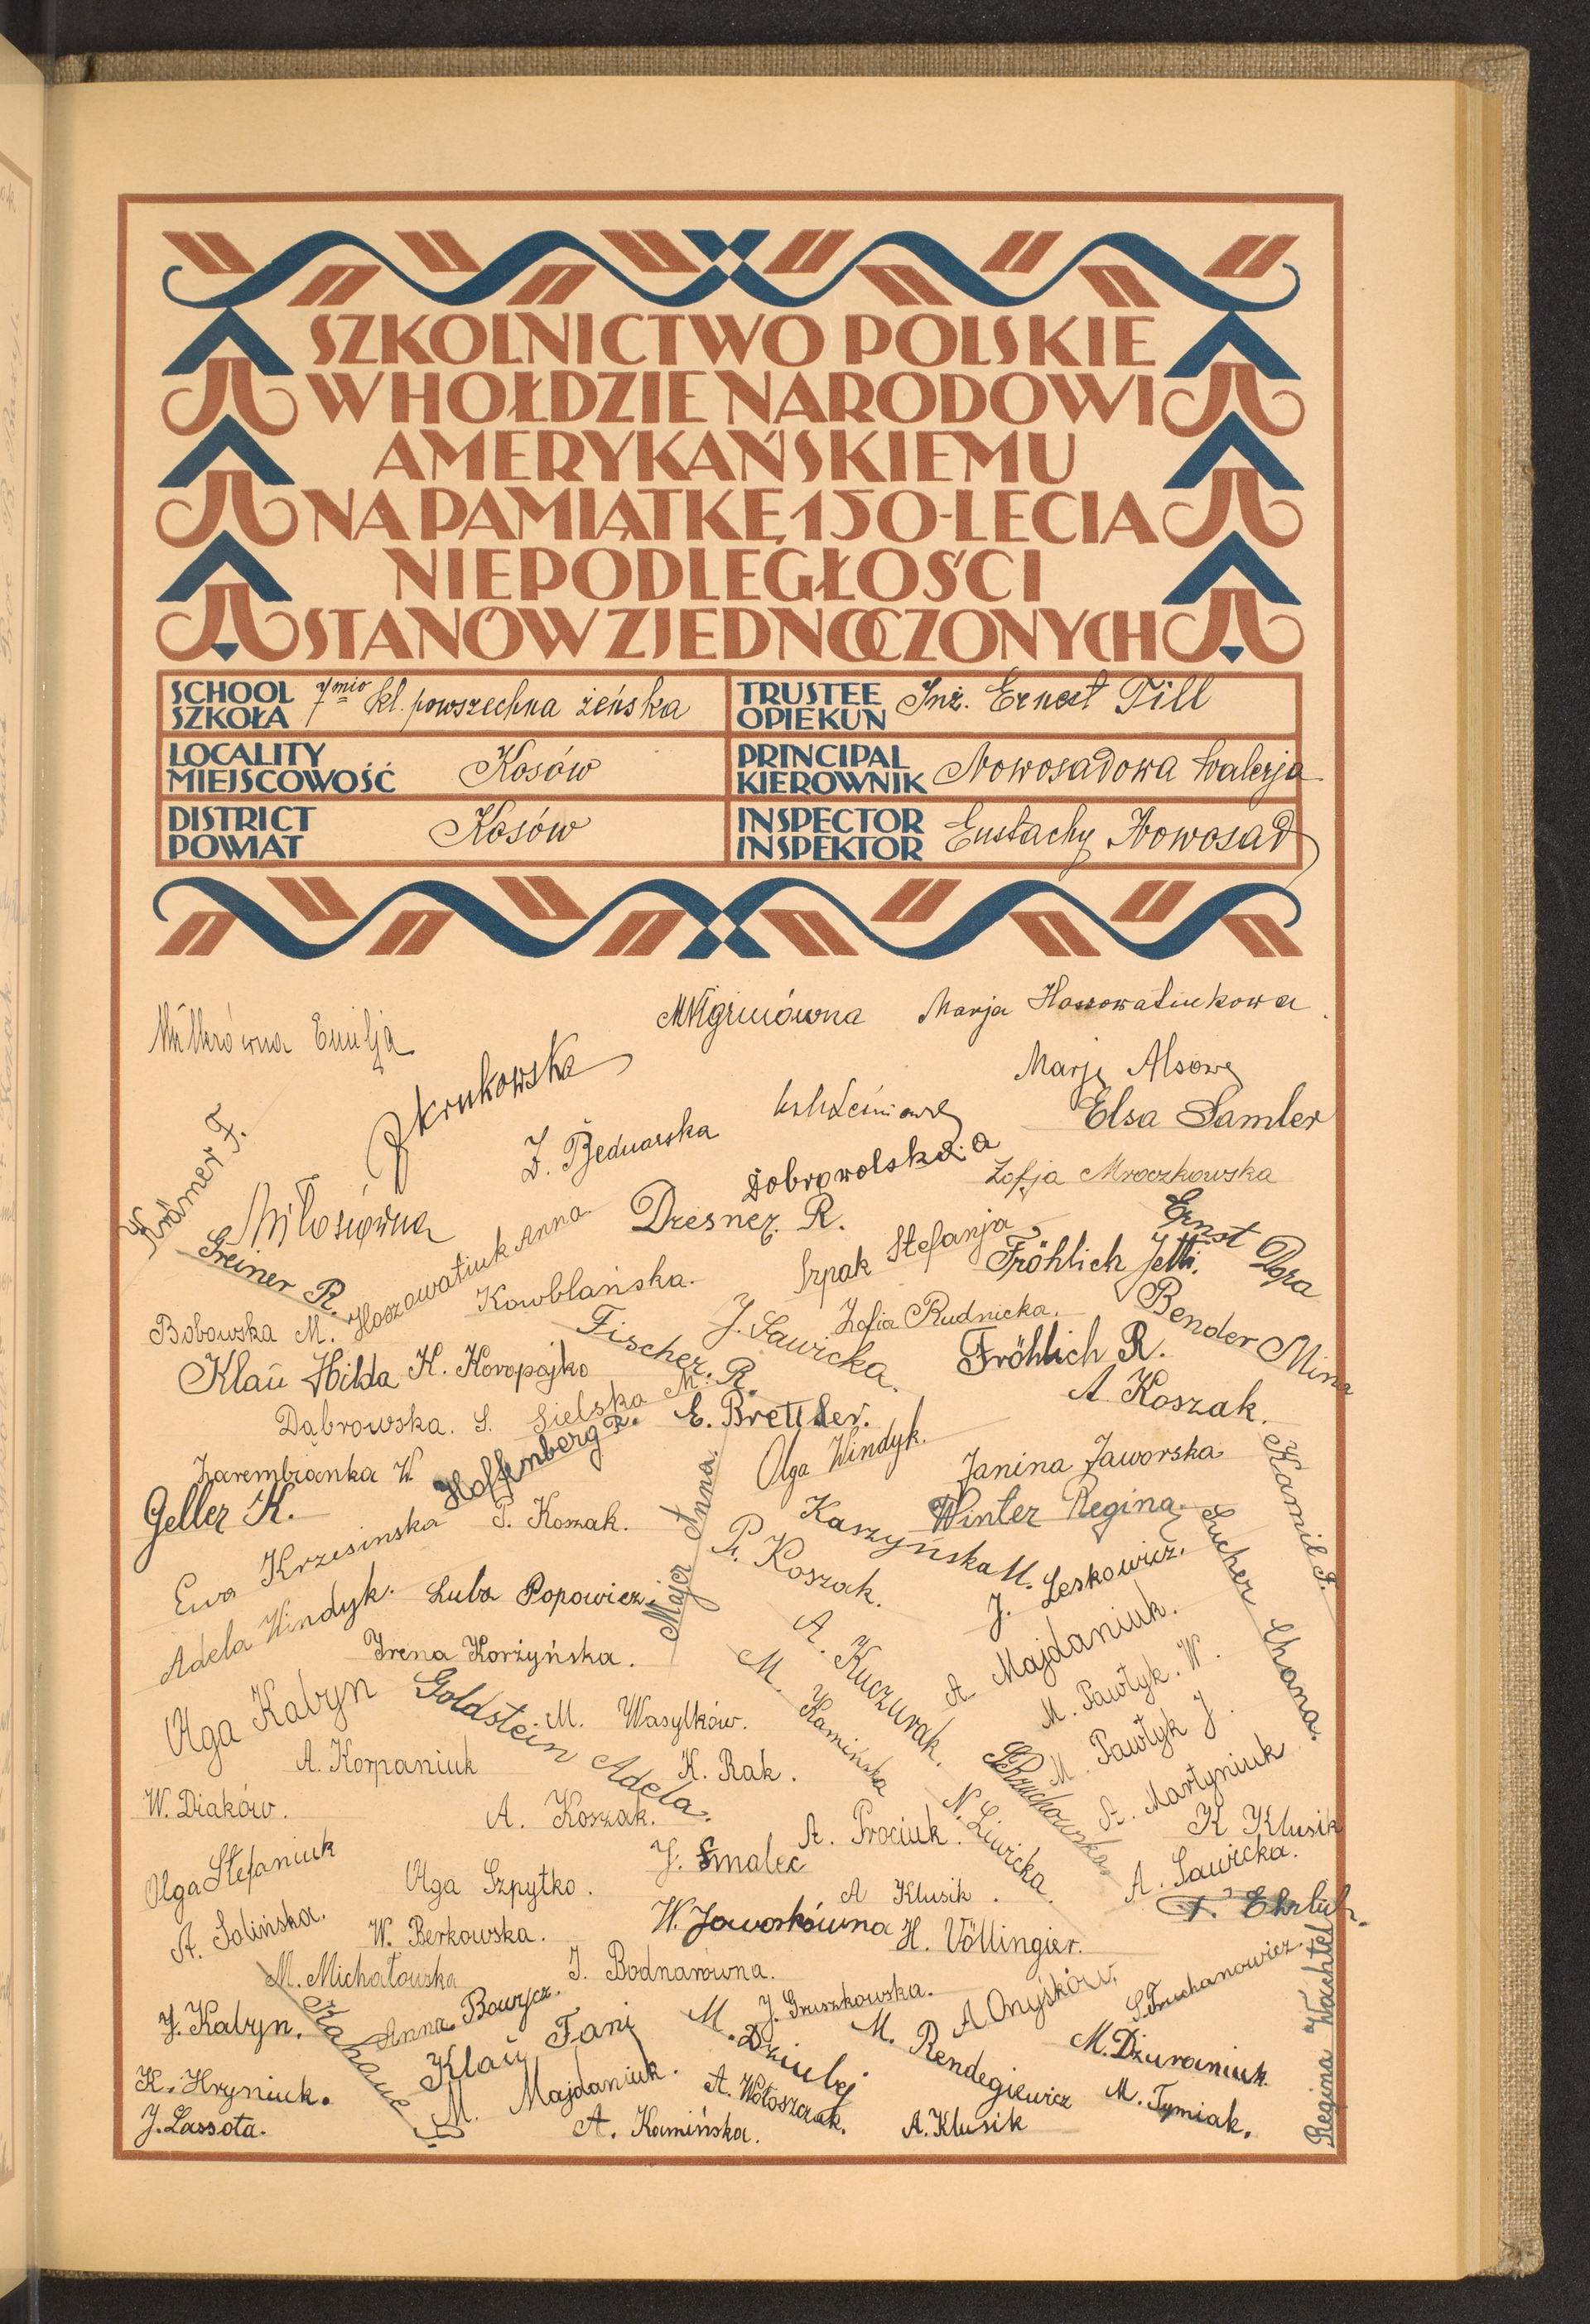 SZKOLNICTWO POLSKIE
W HOŁDZIE NARODOWI
AMERYKAŃSKIEMU
NA PAMIĄTKĘ 150-LECIA
NIEPODLEGŁOŚCI
STANÓW ZJEDNOCZONYCH
SCHOOL
SZKOŁA
7mio kl. powszechna żeńska
TRUSTEE
OPIEKUN
Inż. Ernest Till
LOCALITY
MIEJSCOWOŚĆ
Kosów
PRINCIPAL
KIEROWNIK
Nowosadowa Walerja
DISTRICT
POWIAT
Kosów
INSPECTOR
INSPEKTOR
Eustachy Nowosad
Müllerówna Emilja
Marja Hoszowatiukowa
Krukowska
Marja Alsowa
Elsa Samler
J. Bednarska
Krämer F.
Dobrowolska. a
Zofja Mroczkowska
Miłosiówna
Dresner. R.
Ernst Dora
Greiner R.
Hoszowatiuk Anna
Szpak Stefanja
Fröhlich Jetti.
Kowblańska.
Bobowska M.
Fischer. R.
J. Sawicka.
Zofia Rudnicka.
Bender Mina
Klaü Hilda
K. Koropajko
Fröhlich R.
Sielska M.
A. Koszak.
Dąbrowska. S.
E. Brettler.
Hoffenberg R.
Olga Windyk.
Zarembianka W.
Janina Jaworska
Kamil S.
Geller K.
P. Koszak.
Majer Anna.
Kaszyńska M.
Winter Regina
Ewa Krzesinska
P. Koszak.
J. Leskowicz.
Sucher Chana.
Adela Windyk.
Luba Popowicz.
A. Kuczurak.
A. Majdaniuk.
Irena Korżyńska.
M. Kamińska
M. Pawłyk. W.
Olga Kabyn
Goldstein Adela.
M. Wasylków.
M. Pawłyk J.
A. Korpaniuk
K. Rak.
Bruchowska
A. Martyniuk
W. Diaków.
A. Koszak.
A. Prociuk.
N. Liwicka.
K Klusik
Olga Stefaniuk
J. Smalec
A. Sawicka.
Olga Szpytko.
A Klusik.
F. Ehrlich.
A. Solińska.
W. Berkowska.
W. Jaworkówna
H. Völlingier.
M. Michałowska
J. Bodnarówna.
S. Truchanowicz.
Regina Wachtel
J. Kabyn.
Kahane
Anna Bowycz.
J. Gruszkowska.
A Onyśków.
Klaü Fani
M. Dziubej
M. Rendegiewicz
M. Dżuraniuk.
K. Hryniuk.
M. Majdaniuk.
A. Wołoszczuk.
M. Tymiak.
J. Lassota.
A. Kamińska.
A. Klusik